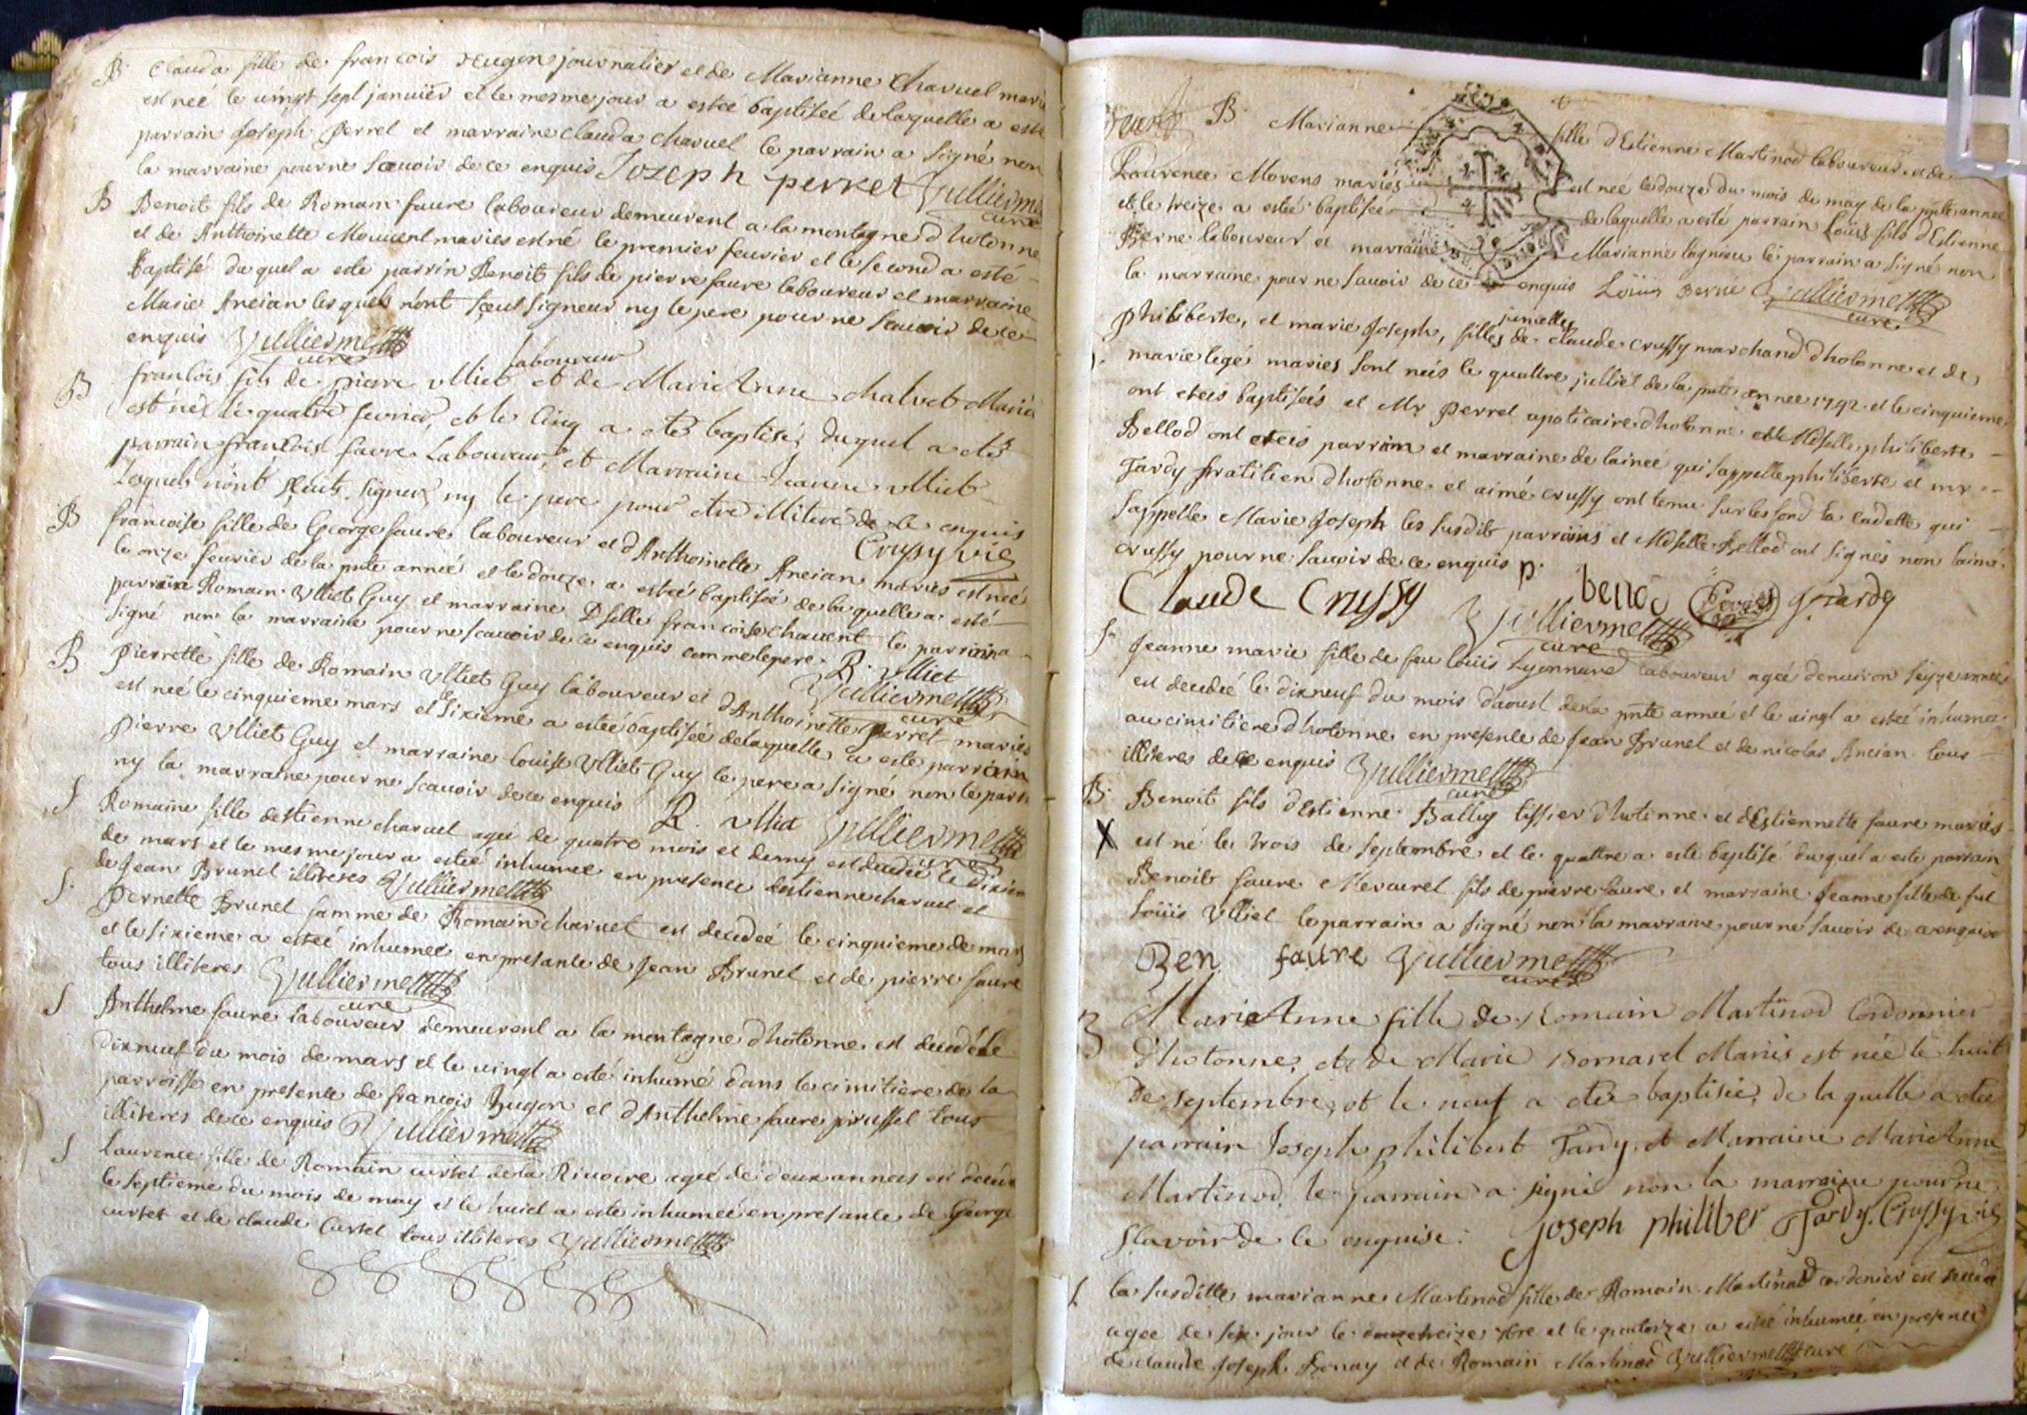 B. Clauda fille de francois Hugon journalier et de Marianne Charvel marie
est neé le vingt sept janvier et le mesme jour a esteé baptiseé de laquelle a esté
parrain Joseph Perret et marraine Clauda Charvel le parrain a signé non
la marraine pour ne scavoir de ce enquis Jozeph perret Vulliermet
curé
B Benoit fils de Romain faure laboureur demeurent a la montagne d'hotonne
et de Anthoinette Mouvent maries est né le premier fevrier et le second a esté
Baptisé du quel a esté parrin Benoit fils de pierre faure laboureur et marraine
Marie Ancian lesquels n'ont sceut signeur ny le pere pour ne scavoir de ce
enquis Vulliermet
curé
laboureur
B francois fils de pierre Ulliet et de Marie Anne Chalvet Mariés
est né le quatre fevrier, et le Cinq a eté baptisé, duquel a eté
parrain francois favre Laboureur, et Marraine Jeanne Ulliet
Lesquels n'ont sceuts signer, ny le pere pour etre illiteré de ce enquis
Crussy vic
B francoise fille de George faure laboureur et d'Anthoinette Ancian mariés est neé
le onze fevrier de la pnte anneé et le douze a esteé baptiseé de laquelle a esté
parrain Romain Ulliet Guy et marraine Dselle francoise chavent le parrin a
signé non la marraine pour ne scavoir de ce enquis comme le pere. R. Ulliet
Vulliermet
curé
B Pierrette fille de Romain Ulliet Guy laboureur et d'Anthoinette Perret mariés
est neé le cinquieme mars et sixieme a esteé baptiseé de laquelle a esté parrain
Pierre Ulliet Guy et marraine louise Ulliet Guy le pere a signé non le parrin
ny la marraine pour ne scavoir de ce enquis R. Ulliet Vulliermet
curé
S Romaine fille d'estienne charvel ageé de quatre mois et demy est decedeé le dixieme
de mars et le mesme jour a esteé inhumeé en presence d'estienne charvel et
de Jean Brunel illiteres Vulliermet
S. Pernette Brunel famme de Romain charvet est decedeé le cinquieme de mars
et le sixieme a esteé inhumeé en presante de Jean Brunel et de pierre faure
tous illiteres Vulliermet
curé
S Anthelme faure laboureur demeurent a la montagne d'hotonne est decedé le
dixneuf du mois de mars et le vingt a esté inhumé dans le cimitiere de la
parroisse en presente de francois Hugon et d'Anthelme faure tous
illiteres de ce enquis Vulliermet
S Laurence fille de Romain curtet de la Rivoire ageé de deux annees est decedeé
le septieme du mois de may et le huict a esté inhumeé en presante de George
curtet et de claude Curtet tous illiteres Vulliermet
B. Marianne fille d'Estienne Martinod laboureur et de
Laurence Movens mariés est neé le douze du mois de may de la pnte annee
et le treize a esteé baptiseé de laquelle a esté parrain Loüis fils d'Estienne
Berne laboureur et marraine Marianne le parrain a signé non
la marraine pour ne scavoir de ce enquis Loüis Berné Vulliermet
curé
jumelles
Philiberte, et marie Joseph, filles de Claude Crussy marchand d'hotonne et de
marie legé maries sont neés le quattre julliet de la pnte annee 1742 et le cinquieme
ont eteés baptiseés et Mr Perret apoticaire d'hotonne et Mdselle philiberte
Bellod ont eteés parrin et marraine de laineé qui s'appelle philiberte et mr
Tardy pratitien d'hotonne et aimé crussy ont tenu sur les fond la cadette qui
s'appelle Marie Joseph les susdits parrains et Mdselle Bellod ont signés non l'aimé
crussy pour ne scavoir de ce enquis p. bellod Perret J. tardy
Claude Crussy Vulliermet
curé
S. Jeanne marie fille de feu loüis Lyonnard laboureur ageé d'environ seize anneés
est decedeé le dixneuf du mois d'aoust de la pnte anneé et le vingt a esteé inhumeé
au cimitiere d'hotonne en presente de Jean Brunel et de nicolas Ancian tous
illiteres de ce enquis Vulliermet
curé
B. Benoit fils d'Estienne Bally tissier d'hotonne et d'Estiennette faure mariés
X est né le trois de septembre et le quattre a esté baptisé duquel a esté parrain
Benoit faure Mercurel fils de pierre faure et marraine Jeanne fille de feu
Loüis Ulliet le parrain a signé non la marraine pour ne scavoir de ce enquise
Ben faure Vulliermet
curé
B Marie Anne fille de Romain Martinod Cordonnier
d'hotonne, et de Marie Bornarel Mariés est née le huit
de septembre, et le neuf a eteé baptisée, de laquelle a eté
parrain Joseph philibert Tardy, et Marraine Marie Anne
Martinod, le parrain a signé non la marraine pour ne
scavoir de ce enquise. Joseph philiber Tardy. Crussy vic
S. la susditte marianne Martinod fille de Romain Martinod cordonier est decedeé
agee de six jour le treize 7bre et le quatorze a esteé inhumeé en presence
de claude Joseph Bonay et de Romain Martinod Vulliermet curé